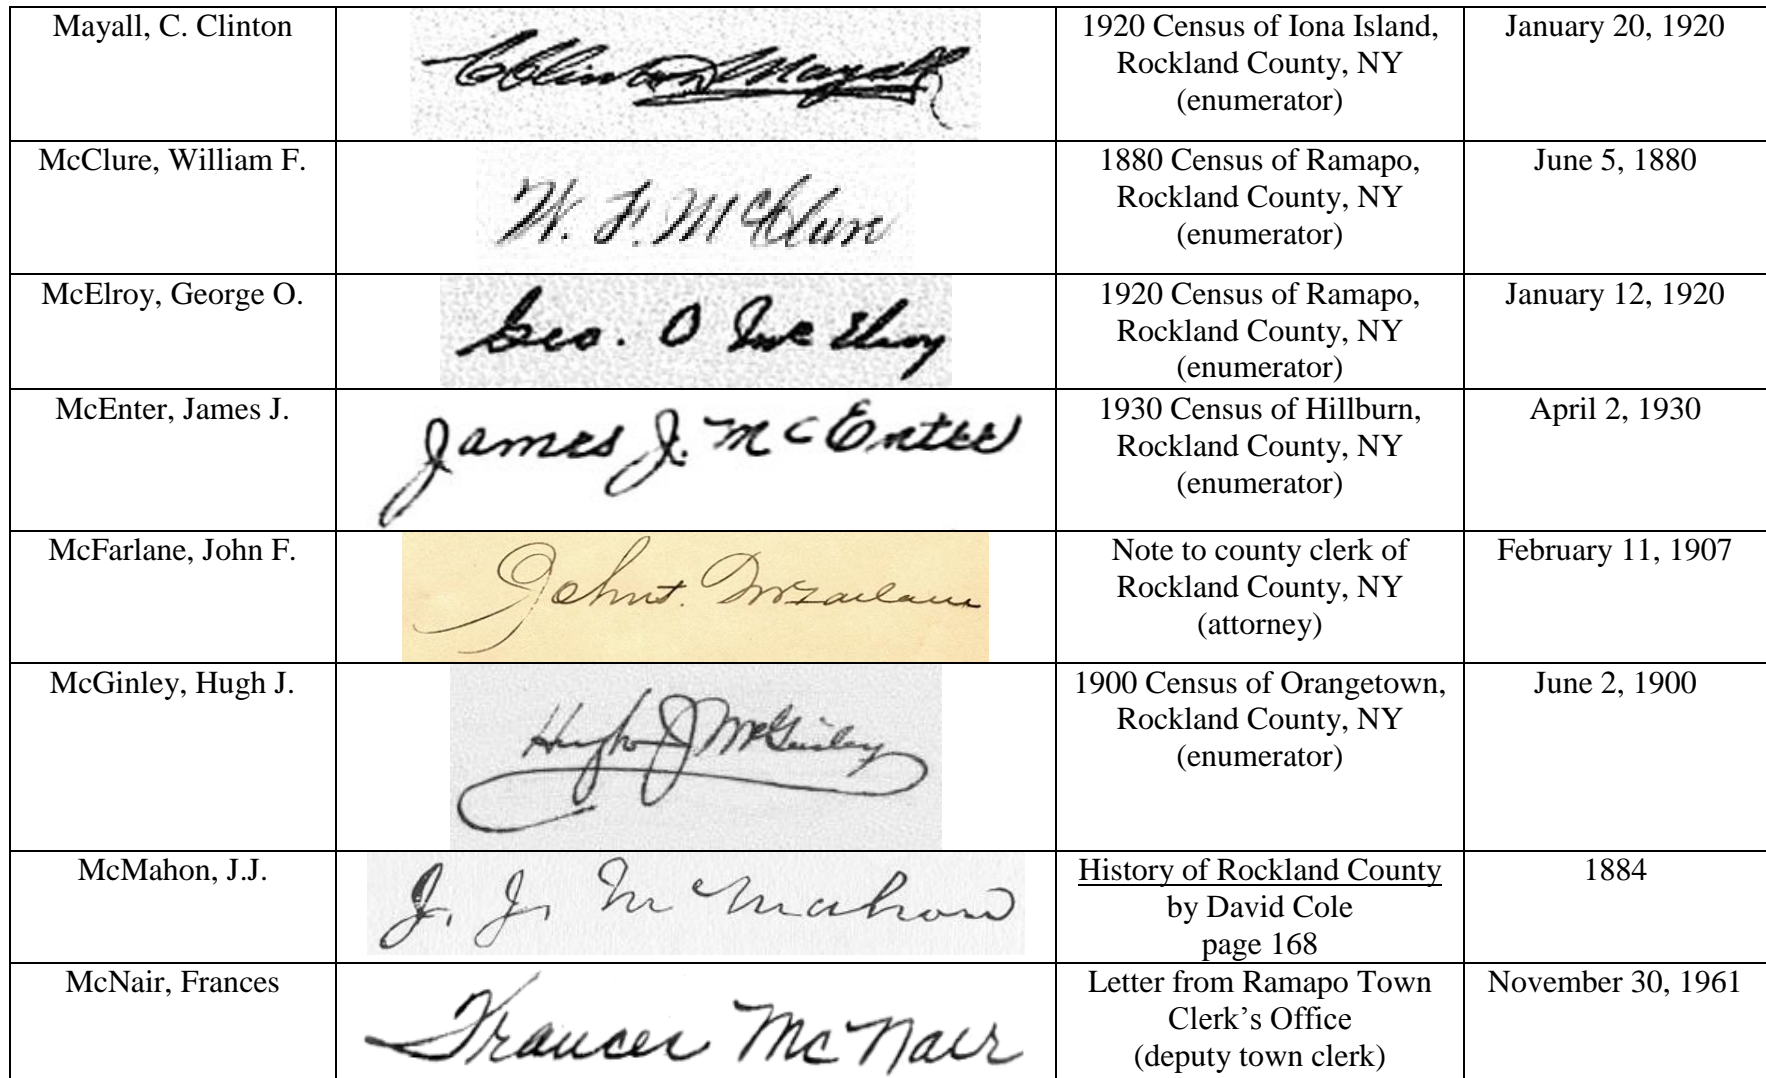 Mayall, C. Clinton
C Clinton Mayall
1920 Census of Iona Island,
Rockland County, NY
(enumerator)
January 20, 1920
McClure, William F.
W. F. McClure
1880 Census of Ramapo,
Rockland County, NY
(enumerator)
June 5, 1880
McElroy, George O.
Geo. O McElroy
1920 Census of Ramapo,
Rockland County, NY
(enumerator)
January 12, 1920
McEnter, James J.
James J. McEntee
1930 Census of Hillburn,
Rockland County, NY
(enumerator)
April 2, 1930
McFarlane, John F.
John F. McFarlane
Note to county clerk of
Rockland County, NY
(attorney)
February 11, 1907
McGinley, Hugh J.
Hugh J McGinley
1900 Census of Orangetown,
Rockland County, NY
(enumerator)
June 2, 1900
McMahon, J.J.
J. J. McMahon
History of Rockland County
by David Cole
page 168
1884
McNair, Frances
Frances McNair
Letter from Ramapo Town
Clerk’s Office
(deputy town clerk)
November 30, 1961